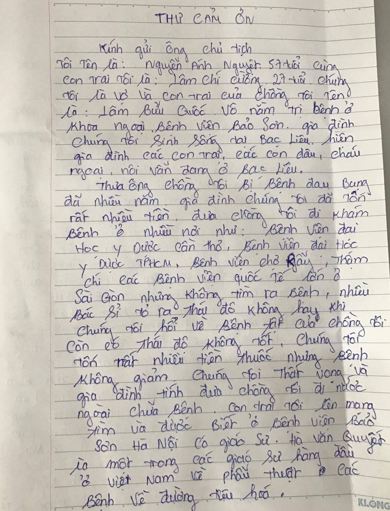 THƯ CẢM ƠN
Kính gửi ông chủ tịch
Tôi tên là: Nguyễn Ánh Nguyệt 57 tuổi cùng
con trai tôi là: Lâm Chí Cường 27 tuổi chúng
tôi là vợ và con trai của chồng tôi tên
là: Lâm Bửu Quốc vô nằm trị bệnh ở
khoa ngoại Bệnh viện Bảo Sơn. gia đình
chúng tôi sinh sống tại Bạc Liêu. hiện
gia đình các con trai, các con dâu, cháu
ngoại, nội vẫn đang ở Bạc Liêu.
Thưa ông chồng tôi bị bệnh đau bụng
đã nhiều năm. gia đình chúng tôi đã tốn
rất nhiều tiền, đưa chồng tôi đi khám
Bệnh ở nhiều nơi như: Bệnh viện đại
Học y Dược cần thơ, Bệnh viện đại Học
y Dược TPHCM, Bệnh viện chợ Rẫy, Thậm
chí các Bệnh viện quốc tế lớn ở
Sài Gòn nhưng không tìm ra Bệnh, nhiều
Bác sĩ tỏ ra thái độ không hay khi
chúng tôi hỏi về Bệnh tật của chồng tôi
còn có thái độ không tốt. chúng tôi
tốn rất nhiều tiền thuốc nhưng Bệnh
không giảm. chúng tôi thất vọng và
gia đình tính đưa chồng tôi đi nước
ngoài chữa Bệnh. con trai tôi lên mạng
tìm và được Biết ở Bệnh viện Bảo
Sơn Hà Nội có giáo sư. Hà Văn Quyết
là một trong các giáo sư hàng đầu
ở Việt Nam về phẫu thuật ở các
Bệnh về đường tiêu hoá.
KLONG